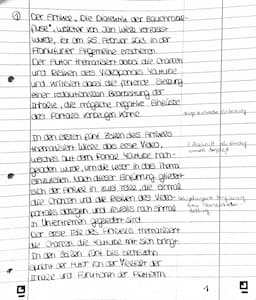 ①
Der Artikel „Die Dialektik der Bauchnabel-
", welcher von Jan Wiele verfasst
wurde, ist am 25. Februar in der
Frankfurter Allgemeine erschienen.
Der Autor thematisiert dabei die Chancen
und Risiken des Videoportals Youtube
und kritisiert dabei die fehlende
einer redaktionellen Bearbeitung der
Inhalte, die mögliche negative Einflüsse
des Portals vorbeugen könne.
In den ersten fünf Zeilen des Artikels
thematisiert Wiele das erste Video,
welches auf dem Portal Youtube hoch-
geladen wurde, um die Leser in das Thema
einzuleiten. Nach dieser Einführung gliedert
sich der Artikel in zwei Teile, die einmal
die Chancen und die Risiken des Video-
portals darlegen und jeweils noch einmal
in Unterthemen gegliedert sind.
Der erste Teil des Artikels thematisiert
die Chancen, die Youtube mit sich bringt.
In den Zeilen fünf bis
spricht der Autor von der Vielfalt der
Inhalte und Funktionen der Plattform.
1